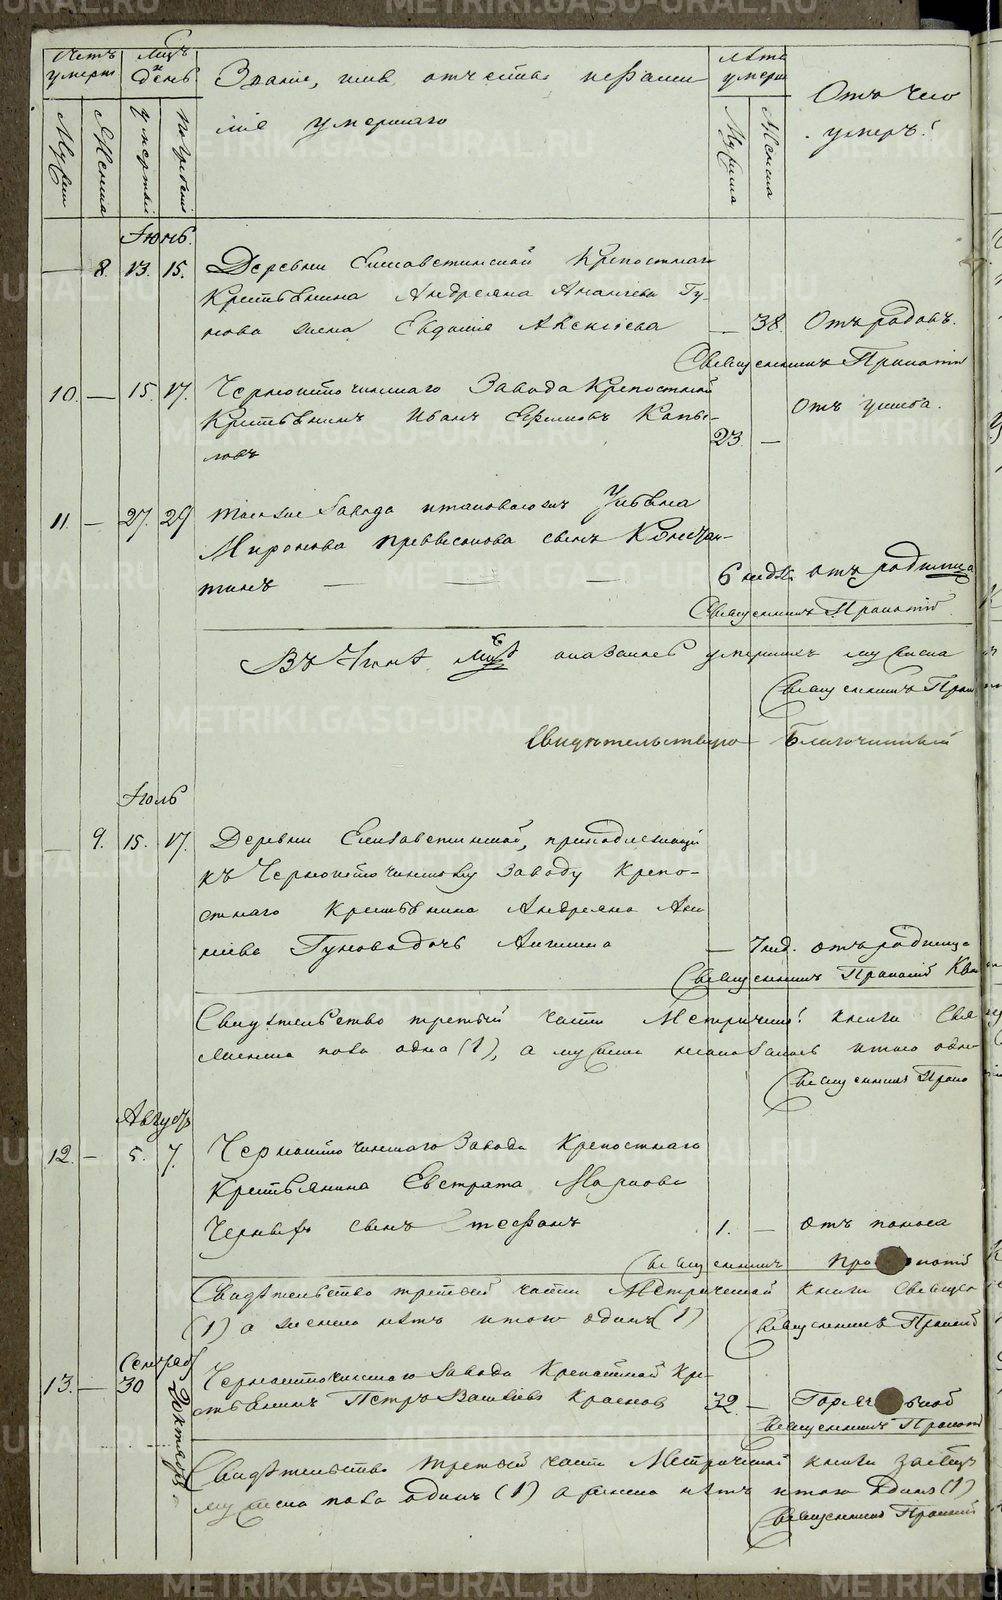 Счетъ умершихъ
Мцъ и день
Званіе, имя отчество и фами
лія умершаго
Лѣта умерш
Отъ чего
умеръ?
Мужеска
Женска
умертвія
погребенія
Мужеска
Женска
Іюнь.
— 8. 13. 15. Деревни Елисаветинской Крепостнаго
Крестьянина Андреяна Ананьева Гу-
нова жена Евдокія Алексіева — 38. Отъ родовъ.
Священникъ Прокопій
10. — 15. 17. Черноисточинскаго Завода Крепостный
Крестьянинъ Иванъ Ефимовъ Копы-
ловъ 23 — Отъ ушиба.
11. — 27. 29 Завода
Миронова сынъ Констан-
тинъ — — — 6 недѣл. отъ родимца
Священникъ Прокопій
Въ Іюнѣ Мцѣ оказалось умершихъ мужеска
Священникъ Прок
Свидѣтельствую Благочинный
Іюль
— 9. 15. 17. Деревни Елисаветинской, принадлежащей
къ Черноисточинскому Заводу Крепо-
стнаго Крестьянина Андреяна Ана
ньева Гунова дочь — 7 нед. отъ родимца
Священникъ Прокопій
Свидѣтельство третьей части Метрической книги
женска пола одна (1), а мужеска неоказалось итого одна
Священникъ Проко
Августъ
12. — 5. 7. Черноисточинскаго Завода Крепостнаго
Крестьянина Евстрата Маркова
Черныхъ сынъ Стефанъ 1. — отъ поноса
Священникъ Прокопій
Свидѣтельство третьей части Метрической книги
(1) а женска нѣтъ итого одинъ (1)
Священникъ Прокопій
Сентябрь
Октября
13. — 30 Черноисточинскаго Завода Крепостной Кре-
стьянинъ Петръ Васильевъ Красновъ 32 — Горячкой
Священникъ Прокоп
Свидѣтельство третьей части Метрической книги
мужеска пола одинъ (1) а женска нѣтъ итого одинъ (1)
Священникъ Прокопій
METRIKI.GASO-URAL.RU